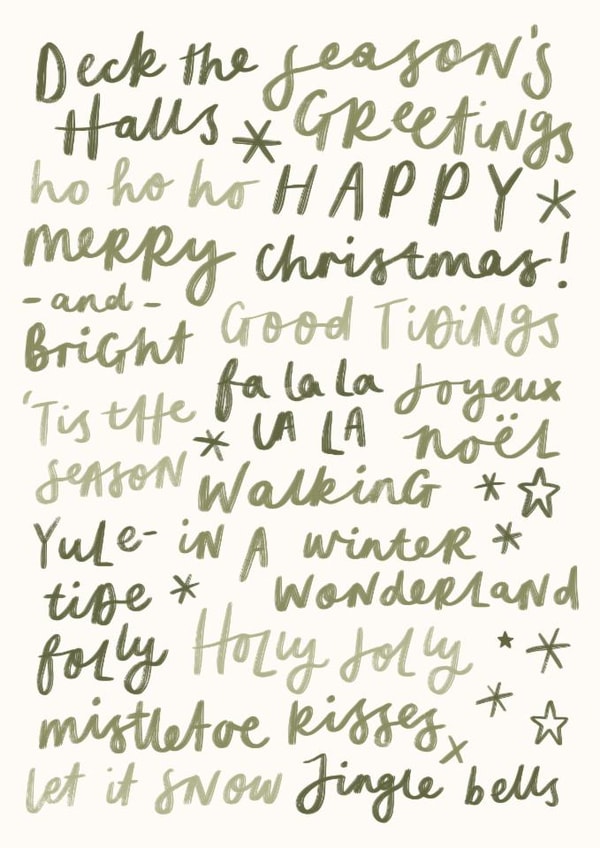 Deck the
Halls
season's
GReetings
ho ho ho
HAPPY
christmas!
meRRy
- and -
BRiGHt
Good TiDiNGs
fa la la
LA LA
Joyeux
noël
'Tis tHe
seAsoN
WalkinG
iN A winteR
WoNdeRLand
YuLe-
tiDe
foLLy
HoLLy JoLLy
mistletoe kisses x
let it sNow
Jingle bells